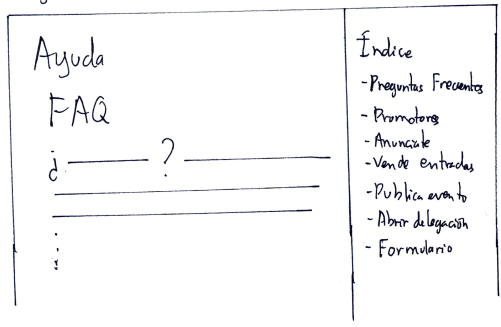 Ayuda
FAQ
¿ ?
Índice
- Preguntas Frecuentes
- Promotores
- Anunciate
- Vende entradas
- Publica evento
- Abrir delegación
- Formulario